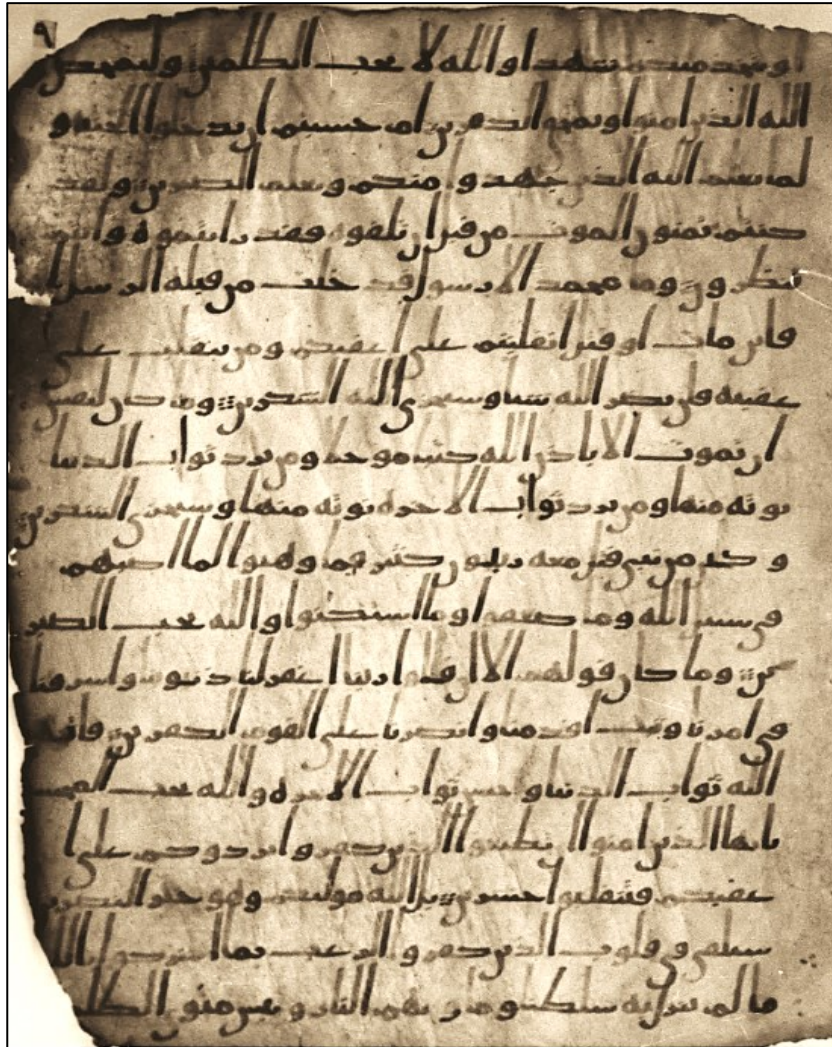 ٩
و يتخذ منكم شهدا والله لا يحب الظلمين وليمحص
الله الذين امنوا ويمحق الكفرين ام حسبتم ان تدخلوا الجنه و
لما يعلم الله الذين جهدوا منكم ويعلم الصبرين ولقد
كنتم تمنون الموت من قبل ان تلقوه فقد رايتموه وانتم
تنظرون وما محمد الا رسول قد خلت من قبله الرسل ا
فاين مات او قتل انقلبتم على اعقبكم ومن ينقلب على
عقبيه فلن يضر الله شيا وسيجزي الله الشكرين وما كان لنفس
ان تموت الا باذن الله كتبا موجلا ومن يرد ثواب الدنيا
نوته منها ومن يرد ثواب الاخره نوته منها وسنجزي الشكرين
وكاين من نبي قتل معه ربيون كثير فما وهنوا لما اصبهم
في سبيل الله وما ضعفوا وما استكنوا والله يحب الصبر
ين وما كان قولهم الا ان قالوا ربنا اغفر لنا ذنوبنا واسرفنا
في امرنا وثبت اقدمنا وانصرنا على القوم الكفرين فاتهم
الله ثواب الدنيا وحسن ثواب الاخره والله يحب المحسنين
يايها الذين امنوا ان تطيعوا الذين كفروا يردوكم على ا
عقبكم فتنقلبوا خسرين بل الله موليكم وهو خير النصرين
سنلقي في قلوب الذين كفروا الرعب بما اشركوا بالله
ما لم ينزل به سلطنا وماويهم النار وبيس مثوى الظلمين